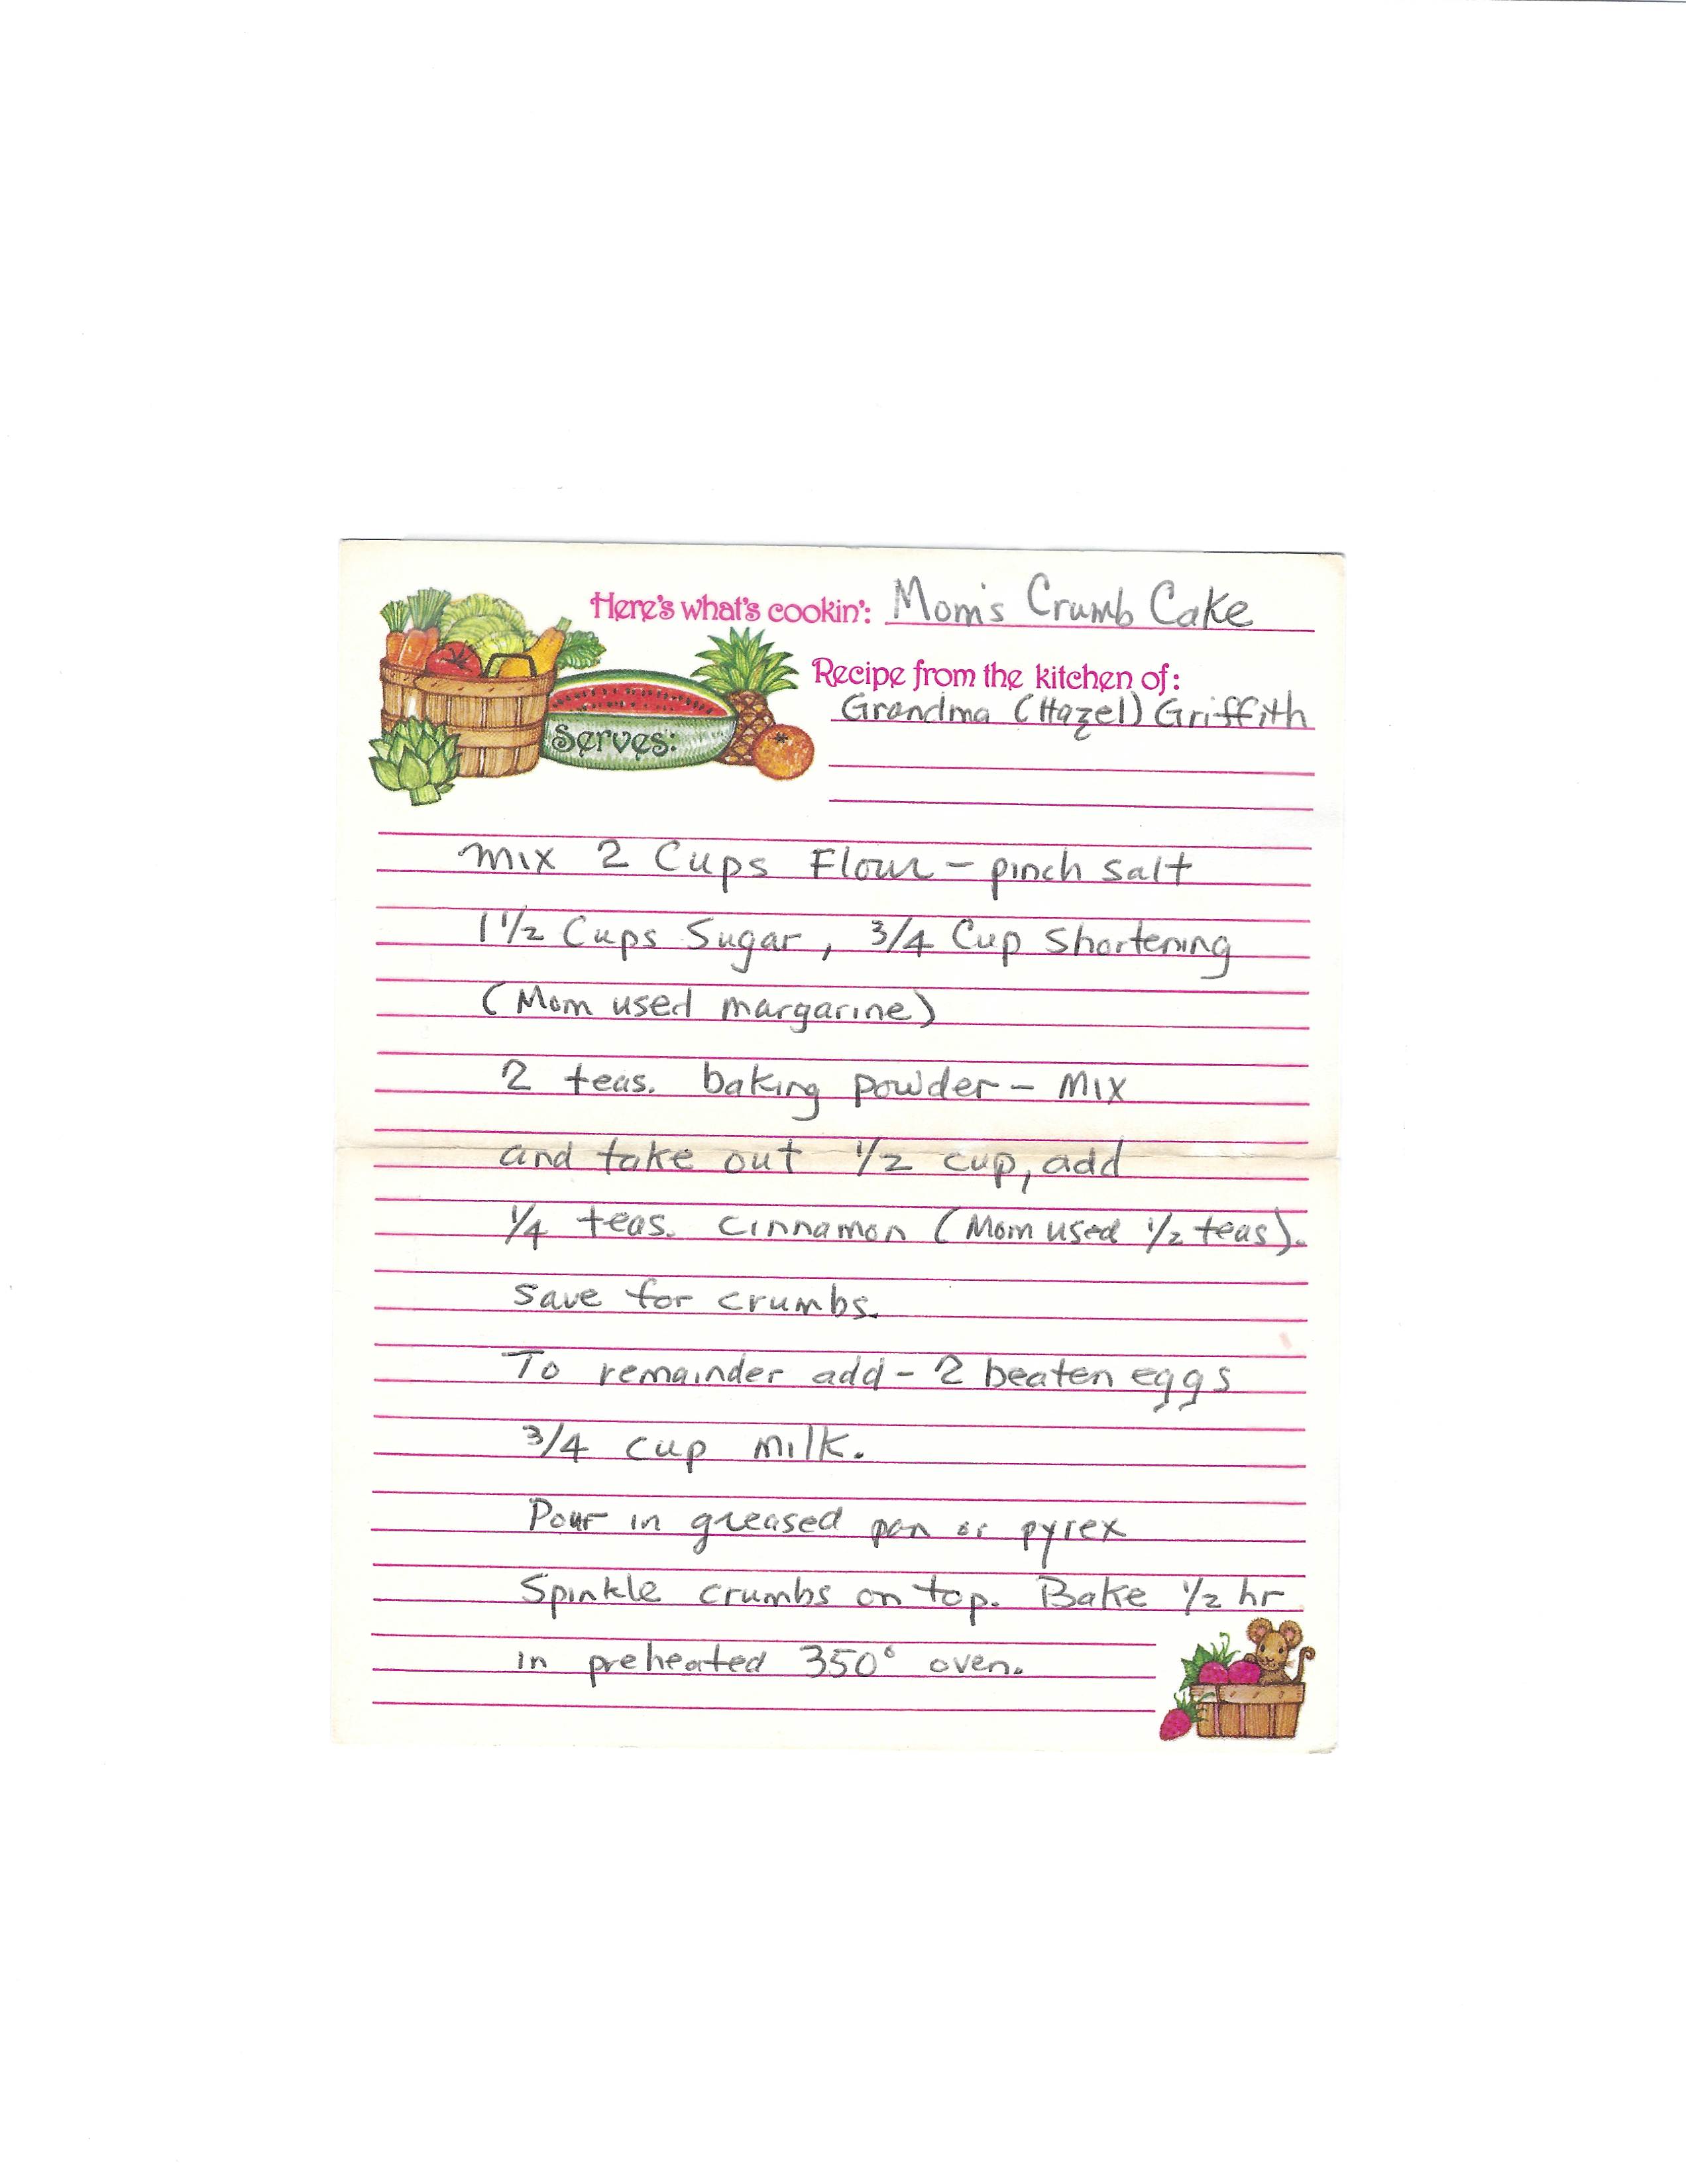 Here's what's cookin': Mom's Crumb Cake
Recipe from the kitchen of:
Grandma (Hazel) Griffith
Serves:
mix 2 Cups Flour - pinch salt
1 1/2 Cups Sugar, 3/4 Cup Shortening
(Mom used margarine)
2 teas. baking powder - Mix
and take out 1/2 cup, add
1/4 teas. cinnamon (Mom used 1/2 teas).
Save for crumbs.
To remainder add - 2 beaten eggs
3/4 cup milk.
Pour in greased pan or pyrex
Spinkle crumbs on top. Bake 1/2 hr
in preheated 350° oven.